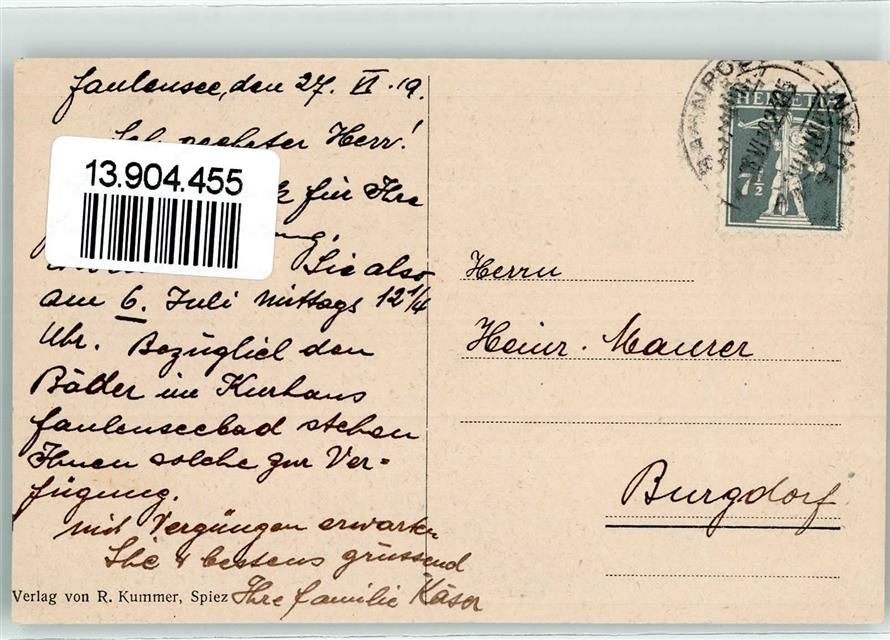 Faulensee, den 27. VI. 19.
Sehr geehrter Herr!
13.904.455
für Ihre
Sie also
am 6. Juli Mittags 12 1/4
Uhr. Bezüglich den
Bäder im Kurhaus
Faulenseebad stehen
Ihnen solche zur Ver-
fügung.
mit Vergnügen erwarten
Sie & bestens grüssend
Ihre Familie Käser
Verlag von R. Kummer, Spiez
HELVETIA
7 1/2
Herrn
Heinr. Maurer
Burgdorf